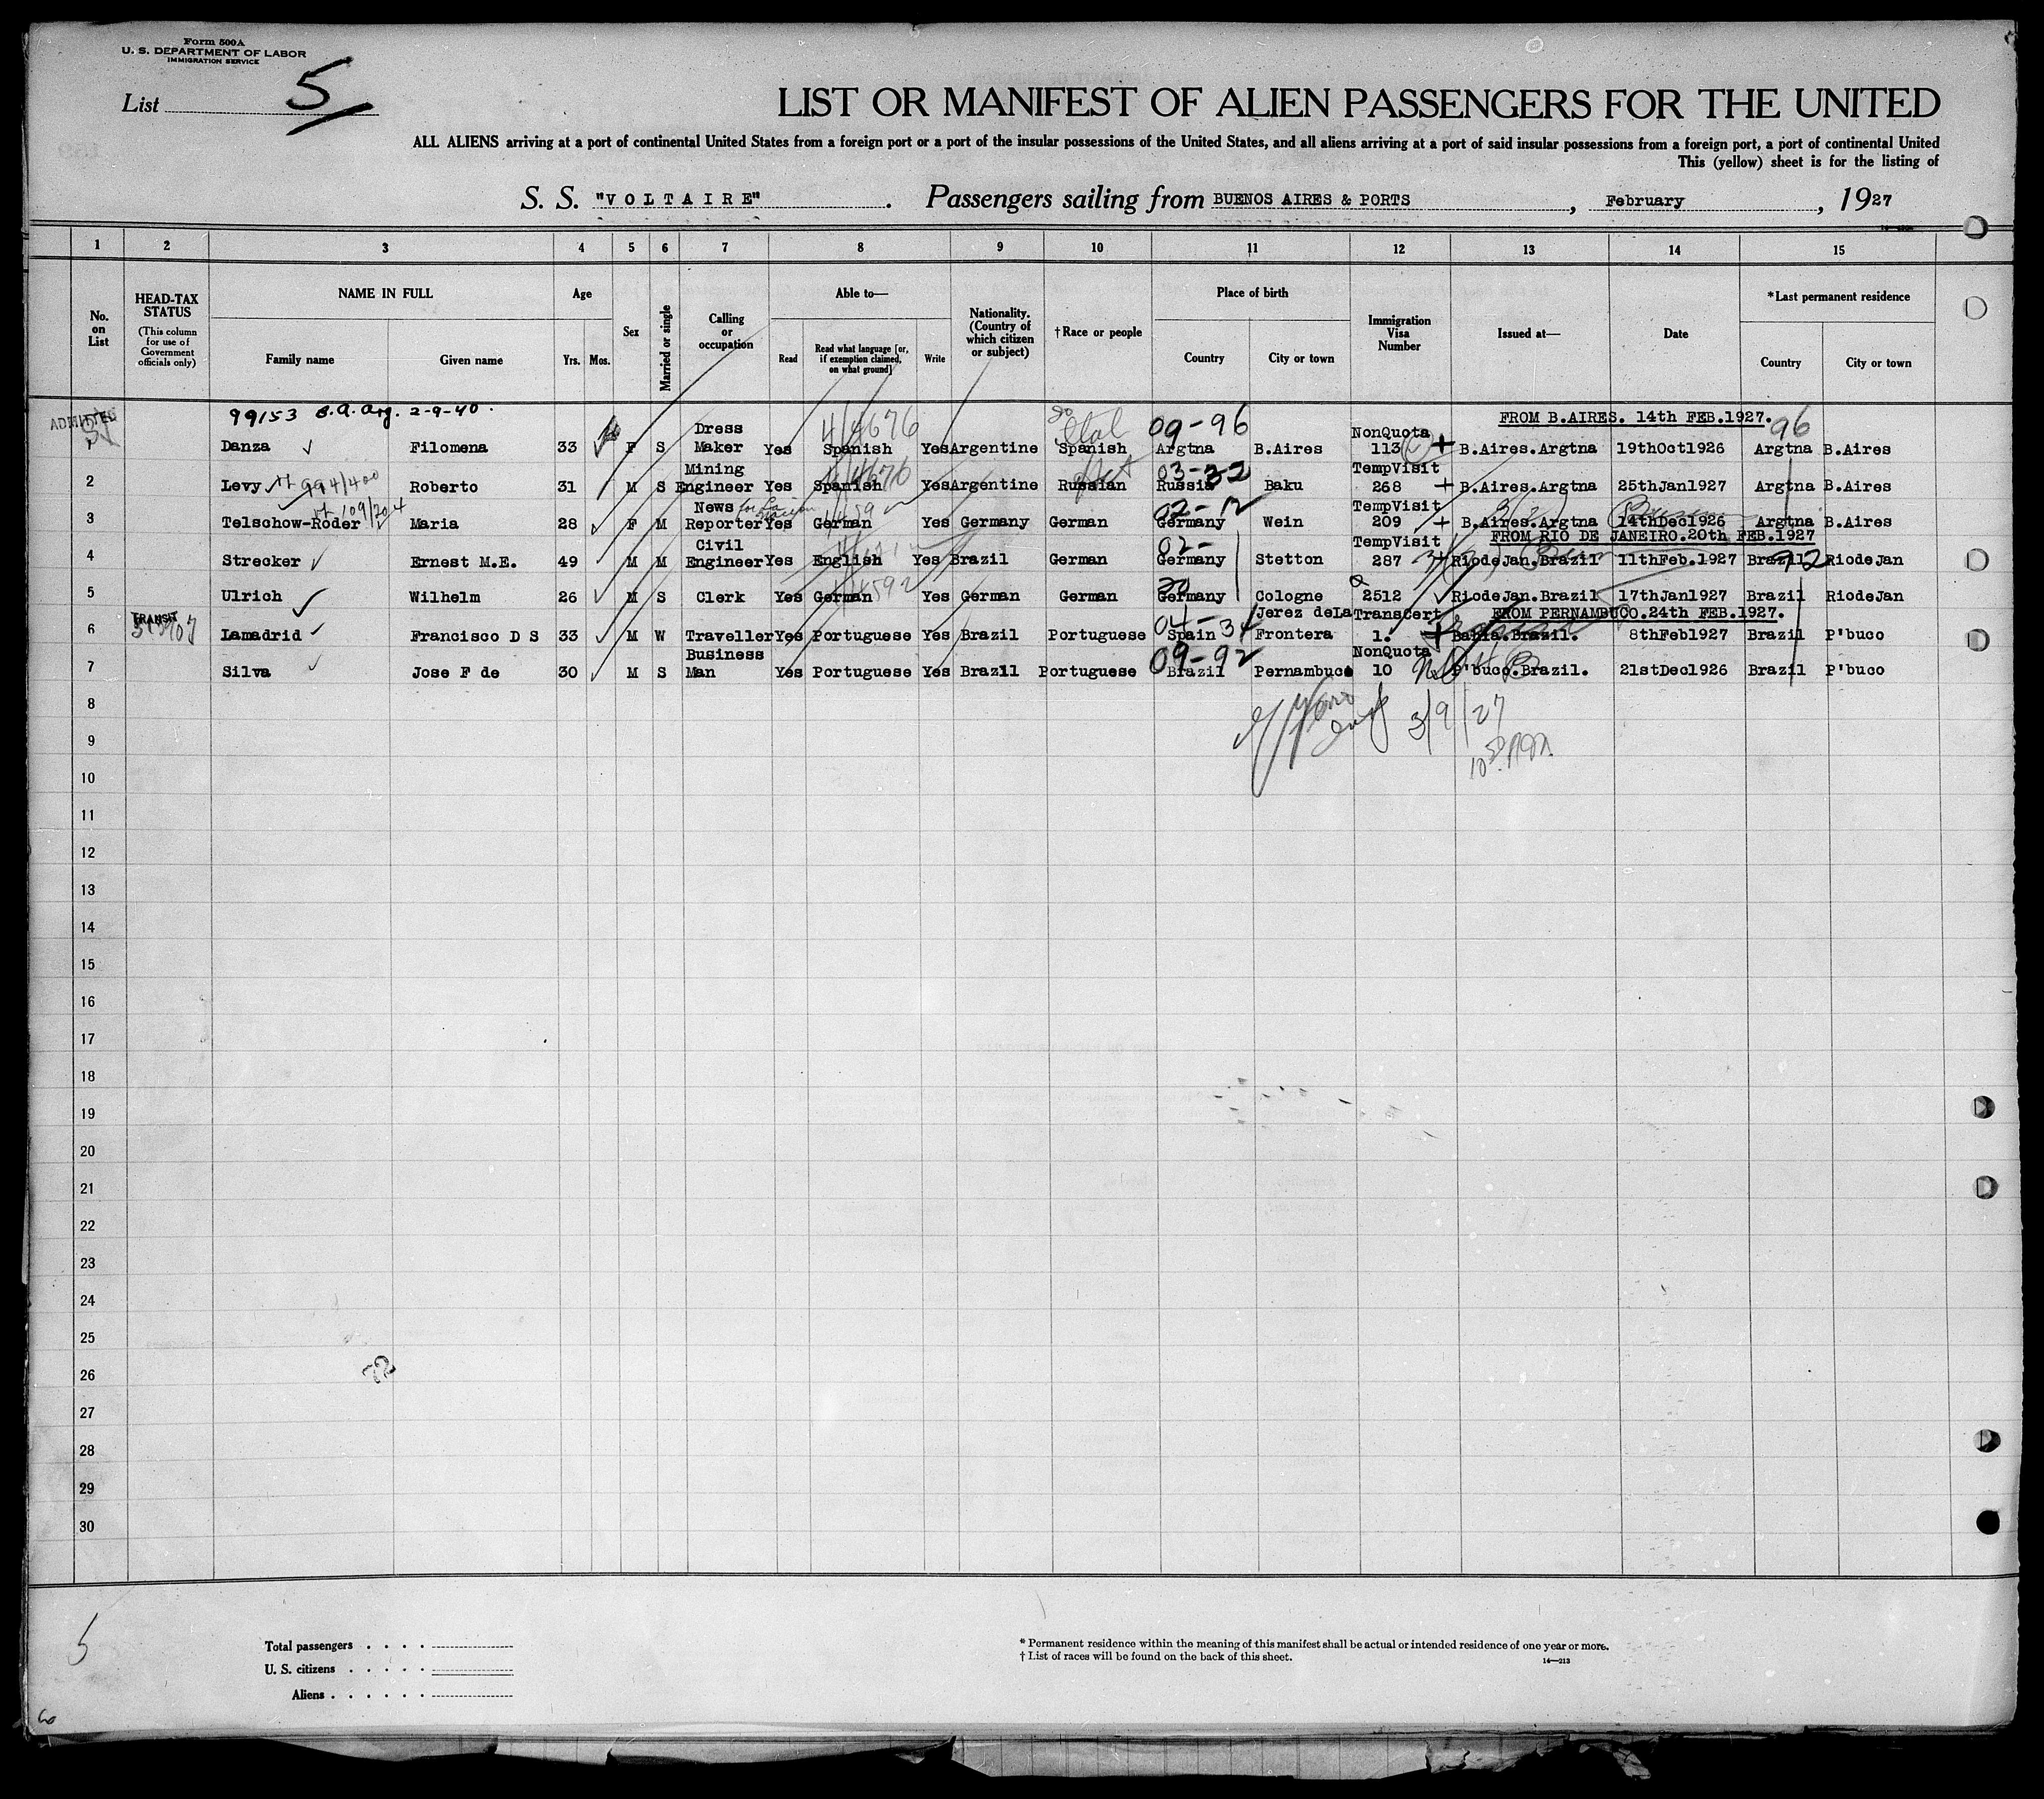 Form 500A
U. S. DEPARTMENT OF LABOR
IMMIGRATION SERVICE
List 5
LIST OR MANIFEST OF ALIEN PASSENGERS FOR THE UNITED
ALL ALIENS arriving at a port of continental United States from a foreign port or a port of the insular possessions of the United States, and all aliens arriving at a port of said insular possessions from a foreign port, a port of continental United
This (yellow) sheet is for the listing of
S. S. "VOLTAIRE". Passengers sailing from BUENOS AIRES & PORTS, February, 1927
1 2 3 4 5 6 7 8 9 10 11 12 13 14 15
No. on List
HEAD-TAX STATUS
(This column for use of Government officials only)
NAME IN FULL
Family name Given name
Age
Yrs. Mos.
Sex
Married or single
Calling or occupation
Able to—
Read
Read what language [or, if exemption claimed, on what ground]
Write
Nationality. (Country of which citizen or subject)
†Race or people
Place of birth
Country City or town
Immigration Visa Number
Issued at—
Date
*Last permanent residence
Country City or town
99153 B.A. Arg. 2-9-40.
FROM B.AIRES. 14th FEB.1927.
ADMITTED
1 Danza Filomena 33 F S Dress Maker Yes Spanish Yes Argentine Spanish Ital 09-96 Argtna B.Aires NonQuota 113 B.Aires.Argtna 19thOct1926 96 Argtna B.Aires
4/4676
2 Levy 994/400 Roberto 31 M S Mining Engineer Yes Spanish Yes Argentine Russian 03-32 Russia Baku TempVisit 268 B.Aires.Argtna 25thJan1927 Argtna B.Aires
4/4676
109/204
3 Telschow-Roder Maria 28 F M News Reporter Yes German Yes Germany German 02-12 Germany Wein TempVisit 209 B.Aires.Argtna 14thDec1926 Argtna B.Aires
FROM RIO DE JANEIRO.20th FEB.1927
4 Strecker Ernest M.E. 49 M M Civil Engineer Yes English Yes Brazil German 02- Germany Stetton TempVisit 287 RiodeJan.Brazil 11thFeb.1927 Brazil 92 RiodeJan
5 Ulrich Wilhelm 26 M S Clerk Yes German Yes German German 20 Germany Cologne Q 2512 RiodeJan.Brazil 17thJan1927 Brazil RiodeJan
FROM PERNAMBUCO.24th FEB.1927.
TRANSIT
6 Lamadrid Francisco D S 33 M W Traveller Yes Portuguese Yes Brazil Portuguese 04-34 Spain Jerez deLa Frontera TransCert 1. Bahia.Brazil. 8thFeb1927 Brazil P'buco
7 Silva Jose F de 30 M S Business Man Yes Portuguese Yes Brazil Portuguese 09-92 Brazil Pernambuco NonQuota 10 P'buco.Brazil. 21stDec1926 Brazil P'buco
8
3/9/27
9
10
11
12
13
14
15
16
17
18
19
20
21
22
23
24
25
26
27
28
29
30
5
Total passengers . . . .
U. S. citizens . . . . .
Aliens . . . . . .
* Permanent residence within the meaning of this manifest shall be actual or intended residence of one year or more.
† List of races will be found on the back of this sheet.
14—213